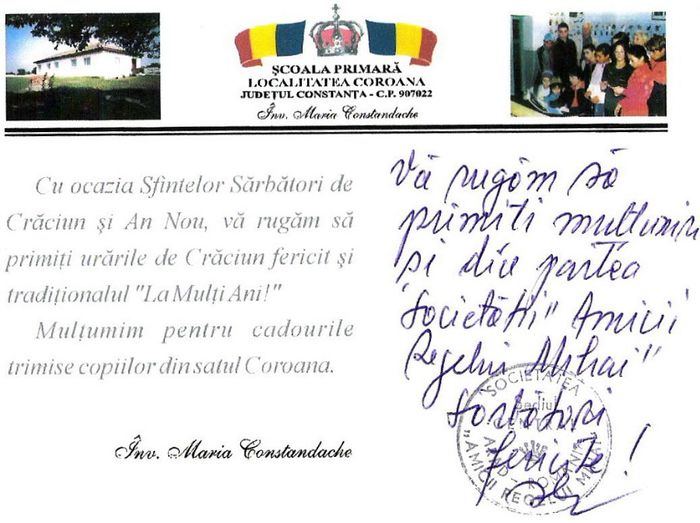 ȘCOALA PRIMARĂ
LOCALITATEA COROANA
JUDEȚUL CONSTANȚA - C.P. 907022
Înv. Maria Constandache
Cu ocazia Sfintelor Sărbători de
Crăciun și An Nou, vă rugăm să
primiți urările de Crăciun fericit și
tradiționalul "La Mulți Ani!"
Mulțumim pentru cadourile
trimise copiilor din satul Coroana.
Înv. Maria Constandache
Vă rugăm să
primiti multumiri
și din partea
Societății "Amicii
Regelui Mihai"
Sărbători
fericite!
SOCIETATEA
Sediul
CENTRAL
ARAD - ROMÂNIA
"AMICII REGELUI MIHAI"